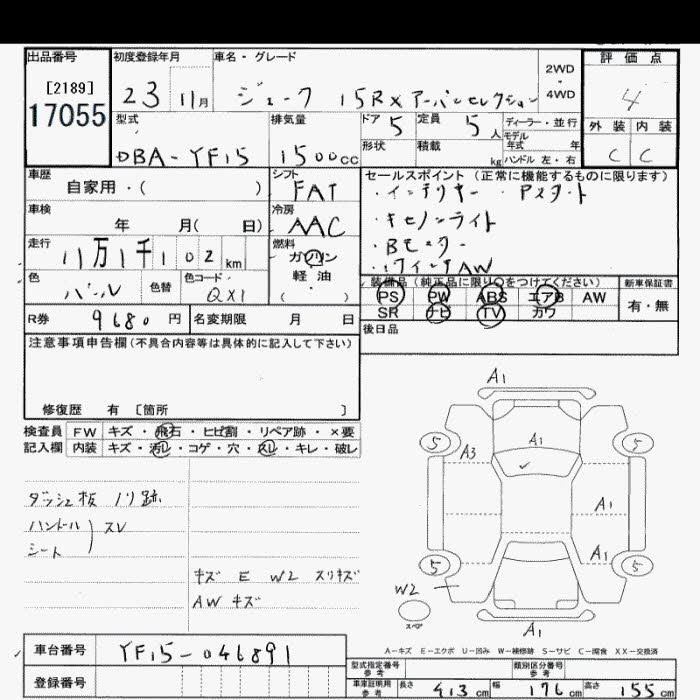 出品番号 初度登録年月 車名・グレード 2WD・4WD 評価点
[2189]
17055
23 11月 ジューク 15RX アーバンセレクション 4
型式 排気量 ドア 5 定員 5人 ディーラー・並行 外装 内装
モデル年式 年
DBA-YF15 1500cc 形状 積載 kg ハンドル 左・右 C C
車歴 シフト セールスポイント(正常に機能するものに限ります)
自家用・( ) FAT ・インテリキー ・Pスタート
車検 冷房 ・キセノンライト
年 月( 日) AAC ・Bモーター
走行 燃料
11万1千102km ガソリン 軽・油 ( )
色 色替 色コード 装備品(純正品に限り○をつけてください) 新車保証書
パール QX1 PS PW ABS エアB AW 有・無
R券 9680円 名変期限 月 日 SR ナビ TV カワ
後日品
注意事項申告欄(不具合内容等は具体的に記入して下さい)
修復歴 有 〔箇所 〕
検査員 FW キズ・飛石・ヒビ割・リペア跡・×要
記入欄 内装 キズ・汚レ・コゲ・穴・スレ・キレ・破レ
ダッシュ板 ノリ跡
ハンドル
シート
スレ
キズ E W2 スリキズ
AW キズ
A1
5 A3 A1 5
A1
5 A1 5
W2
スペア
A1
A-キズ E-エクボ U-凹み W-補修跡 S-サビ C-腐食 XX-交換済
車台番号 YF15-046891
型式指定番号 参考 類別区分番号 参考
登録番号
車庫証明用 参考 長さ 413cm 幅 176cm 高さ 155cm